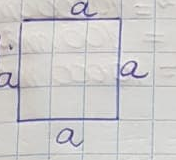 a
a a
a